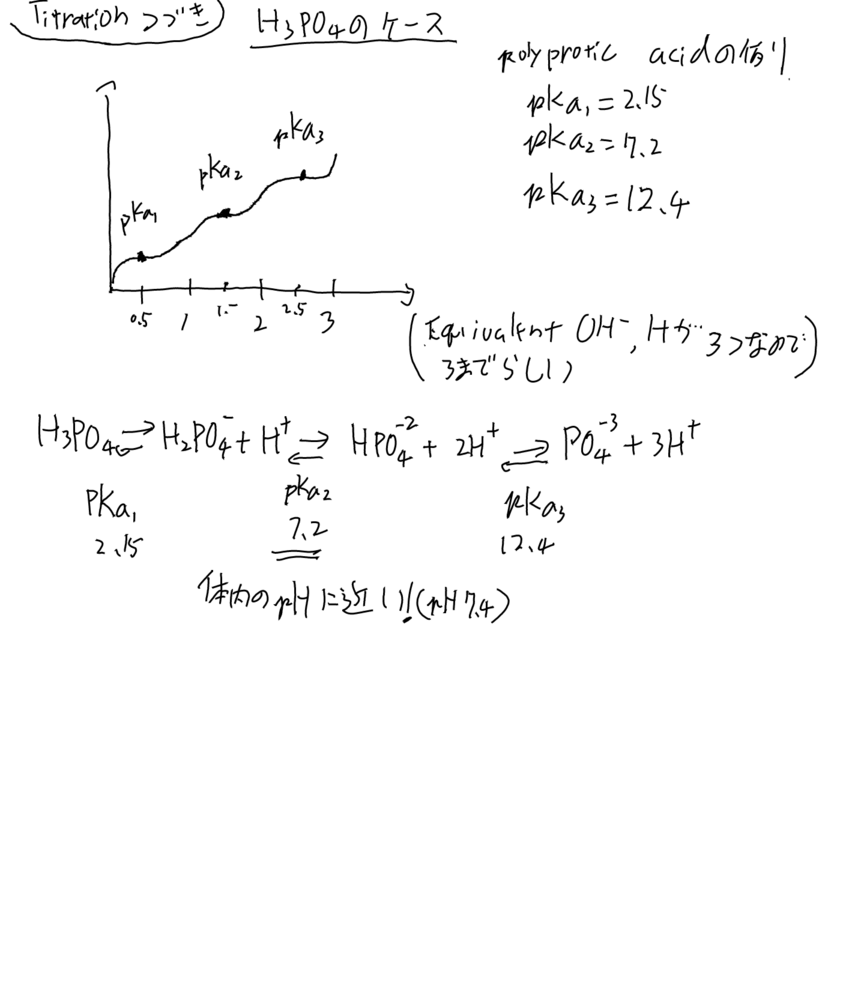 Titration つづき
H₃PO₄のケース
polyprotic acidの例
pKa₁=2.15
pKa₂=7.2
pKa₃=12.4
pKa₁
pKa₂
pKa₃
0.5 1 1.5 2 2.5 3
(Equivalent OH⁻, Hが 3つなので
3までらしい)
H₃PO₄ ⇌ H₂PO₄⁻ + H⁺ ⇌ HPO₄⁻² + 2H⁺ ⇌ PO₄⁻³ + 3H⁺
PKa₁ pKa₂ pKa₃
2.15 7.2 12.4
体内のpHに近い!(pH7.4)